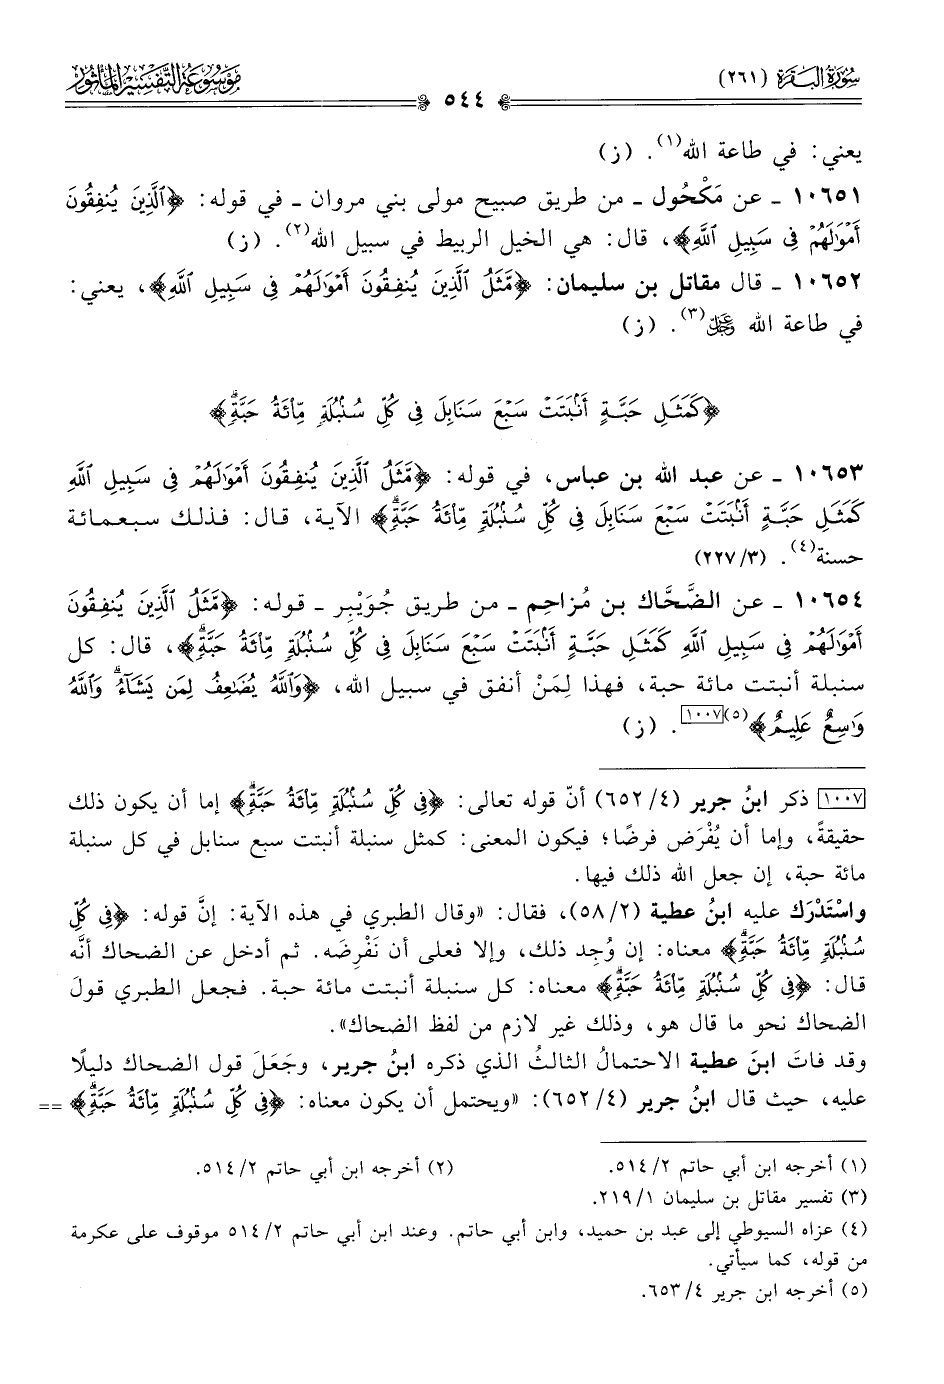 سُورَةُ البَقَرَةِ (٢٦١)
٥٤٤
مَوْسُوعَةُ التَّفْسِيرِ المَأْثُورِ
يعني: في طاعة الله(١). (ز)
١٠٦٥١ ـ عن مَكْحُول ـ من طريق صبيح مولى بني مروان ـ في قوله: ﴿ٱلَّذِينَ يُنفِقُونَ
أَمْوَٰلَهُمْ فِى سَبِيلِ ٱللَّهِ﴾، قال: هي الخيل الربيط في سبيل الله(٢). (ز)
١٠٦٥٢ ـ قال مقاتل بن سليمان: ﴿مَّثَلُ ٱلَّذِينَ يُنفِقُونَ أَمْوَٰلَهُمْ فِى سَبِيلِ ٱللَّهِ﴾، يعني:
في طاعة الله ﷿(٣). (ز)
﴿كَمَثَلِ حَبَّةٍ أَنۢبَتَتْ سَبْعَ سَنَابِلَ فِى كُلِّ سُنۢبُلَةٍ مِّا۟ئَةُ حَبَّةٍۗ﴾
١٠٦٥٣ ـ عن عبد الله بن عباس، في قوله: ﴿مَّثَلُ ٱلَّذِينَ يُنفِقُونَ أَمْوَٰلَهُمْ فِى سَبِيلِ ٱللَّهِ
كَمَثَلِ حَبَّةٍ أَنۢبَتَتْ سَبْعَ سَنَابِلَ فِى كُلِّ سُنۢبُلَةٍ مِّا۟ئَةُ حَبَّةٍۗ﴾ الآية، قال: فذلك سبعمائة
حسنة(٤). (٣/ ٢٢٧)
١٠٦٥٤ ـ عن الضَّحَّاك بن مُزاحِم ـ من طريق جُوَيْبِر ـ قوله: ﴿مَّثَلُ ٱلَّذِينَ يُنفِقُونَ
أَمْوَٰلَهُمْ فِى سَبِيلِ ٱللَّهِ كَمَثَلِ حَبَّةٍ أَنۢبَتَتْ سَبْعَ سَنَابِلَ فِى كُلِّ سُنۢبُلَةٍ مِّا۟ئَةُ حَبَّةٍۗ﴾، قال: كل
سنبلة أنبتت مائة حبة، فهذا لِمَنْ أنفق في سبيل الله، ﴿وَٱللَّهُ يُضَٰعِفُ لِمَن يَشَآءُۗ وَٱللَّهُ
وَٰسِعٌ عَلِيمٌ﴾(٥)[١٠٠٧]. (ز)
[١٠٠٧] ذكر ابنُ جرير (٤/ ٦٥٢) أنّ قوله تعالى: ﴿فِى كُلِّ سُنۢبُلَةٍ مِّا۟ئَةُ حَبَّةٍۗ﴾ إما أن يكون ذلك
حقيقةً، وإما أن يُفْرَض فرضًا؛ فيكون المعنى: كمثل سنبلة أنبتت سبع سنابل في كل سنبلة
مائة حبة، إن جعل الله ذلك فيها.
واسْتَدْرَك عليه ابنُ عطية (٢/ ٥٨)، فقال: «وقال الطبري في هذه الآية: إنَّ قوله: ﴿فِى كُلِّ
سُنۢبُلَةٍ مِّا۟ئَةُ حَبَّةٍۗ﴾ معناه: إن وُجِد ذلك، وإلا فعلى أن نَفْرِضَه. ثم أدخل عن الضحاك أنَّه
قال: ﴿فِى كُلِّ سُنۢبُلَةٍ مِّا۟ئَةُ حَبَّةٍۗ﴾ معناه: كل سنبلة أنبتت مائة حبة. فجعل الطبري قولَ
الضحاك نحو ما قال هو، وذلك غير لازم من لفظ الضحاك».
وقد فاتَ ابنَ عطية الاحتمالُ الثالثُ الذي ذكره ابنُ جرير، وجَعَلَ قول الضحاك دليلًا
عليه، حيث قال ابنُ جرير (٤/ ٦٥٢): «ويحتمل أن يكون معناه: ﴿فِى كُلِّ سُنۢبُلَةٍ مِّا۟ئَةُ حَبَّةٍۗ﴾ ==
(١) أخرجه ابن أبي حاتم ٢/ ٥١٤.
(٢) أخرجه ابن أبي حاتم ٢/ ٥١٤.
(٣) تفسير مقاتل بن سليمان ١/ ٢١٩.
(٤) عزاه السيوطي إلى عبد بن حميد، وابن أبي حاتم. وعند ابن أبي حاتم ٢/ ٥١٤ موقوف على عكرمة
من قوله، كما سيأتي.
(٥) أخرجه ابن جرير ٤/ ٦٥٣.